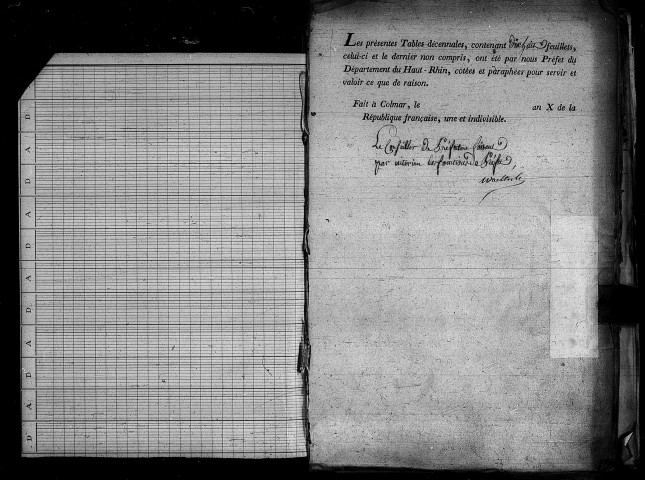 D
A
D
A
D
A
D
A
D
A
D
Les présentes Tables décennales, contenant feuillets,
celui-ci et le dernier non compris, ont été par nous Préfet du
Département du Haut-Rhin, cotées et paraphées pour servir et
valoir ce que de raison.
Fait à Colmar, le an X de la
République française, une et indivisible.
Le Conseiller de Préfecture
par interim les fonctions de Préfet